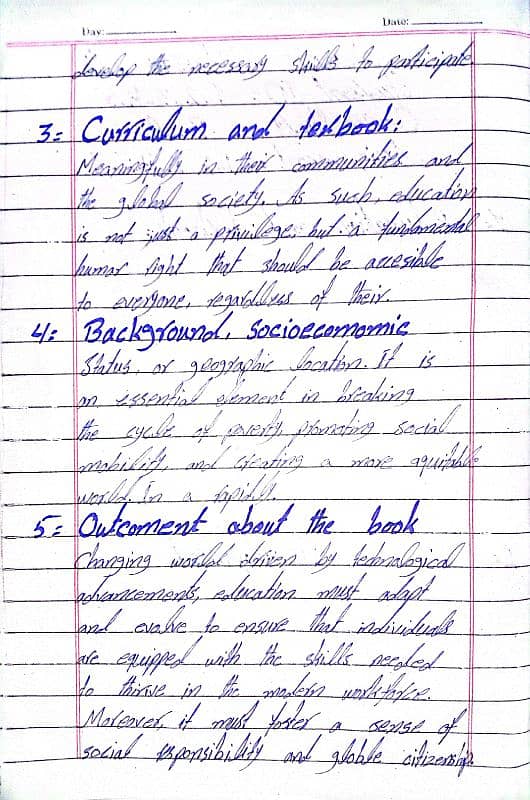 Day:
Date:
develop the necessary skills to participate
3= Curriculum and texbook:
Meaningfully in their communities and
the global society. As such, education
is not just a privilege, but a fundamental
human right that should be accesible
to everyone, regardless of their.
4: Background, Socioecomomic
Status, or geographic location. It is
an essential element in breaking
the cycle of poverty, promoting social
mobility, and creating a more equitable
world. In a rapidly.
5= Outcoment about the book
Changing world driven by technological
advancements, education must adapt
and evolve to ensure that individuals
are equipped with the skills needed
to thrive in the modern workforce.
Moreover, it must foster a sense of
social responsibility and globle citizenship